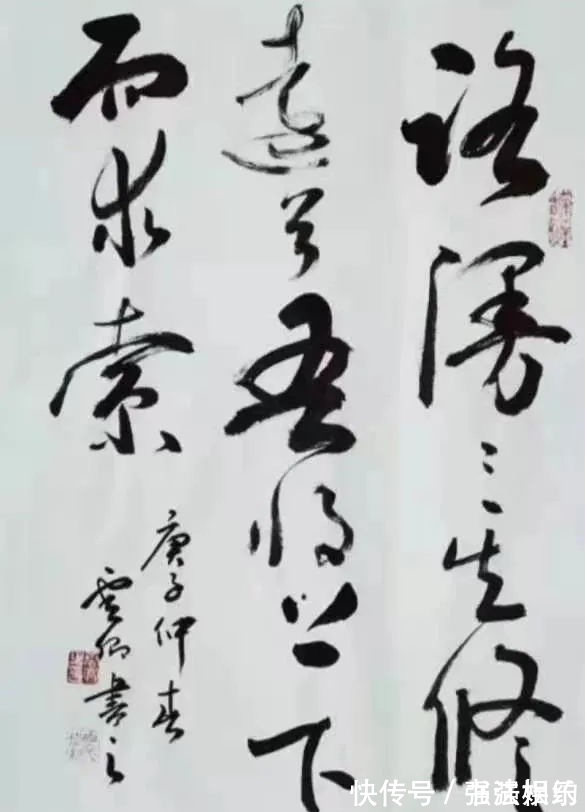 路漫漫其修
遠兮吾将上下
而求索
庚子仲春
雲卿書之
快传号 /